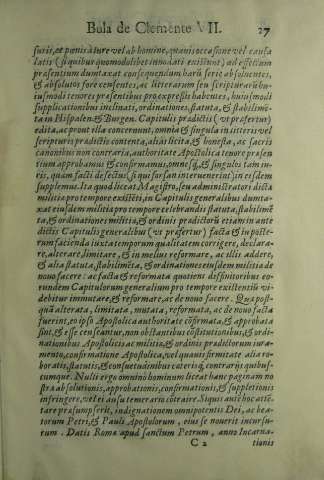 Bula de Clemente VII. 27
suris, et penis à iure vel ab homine, quavis occasione vel causa
latis (si quibus quomodolibet innodati existunt) ad effectum
præsentium dumtaxat consequendum harū serie absoluentes,
& absolutos fore censentes, ac litterarum seu scripturarū hu-
iusmodi tenores præsentibus pro expressis habentes, huiusmodi
supplicationibus inclinati, ordinationes, statuta, & stabilimē
ta in Hispalen, & Burgen. Capitulis prædictis (vt præfertur)
edita, ac prout illa concernunt, omnia & singula in litteris vel
scripturis prædictis contenta, alias licita, & honesta, ac sacris
canonibus non contraria, authoritate Apostolica tenore præsen
tium approbamus & confirmamus, omnesq́, & singulos tam iu-
ris, quam facti defectus (si qui forsan interuenerint) in eisdem
supplemus. Ita quod liceat Magistro, seu administratori dictæ
militiæ pro tempore existēti, in Capitulis generalibus dumta-
xat eiusdem militiæ pro tempore celebrandis statuta, stabilimē
ta, & ordinationes militiæ, & ordinis prædictorū etiam in ante
dictis Capitulis generalibus (vt præfertur) facta & in poste-
rum facienda iuxta temporum qualitatem corrigere, declara-
re, alterare, limitare, & in melius reformare, ac illis addere,
& alia statuta, stabilimēta, & ordinationes eiusdem militiæ de
nouo facere: ac facta & reformata quotiens definitoribus eo-
rundem Capitulorum generalium pro tempore existentiū vi-
debitur immutare, & reformare, ac de nouo facere. Quæ post-
quā alterata, limitata, mutata, reformata, ac de nouo facta
fuerint, eo ipso Apostolica authoritate cōfirmata, & approbata
sint, & esse censeantur, non obstantibus cōstitutionibus, & ordi-
nationibus Apostolicis ac militiæ, & ordinis prædictorum iura-
mento, confirmatione Apostolica, vel quauis firmitate alia ro-
boratis, statutis, & consuetudinibus cæterisq́, contrariis quibus-
cumque. Nulli ergo omnino hominum liceat hanc paginam no
stræ absolutionis, approbationis, confirmationis, & suppletionis
infringere, vel ei ausu temerario cōtraire. Siquis autē hoc attē-
tare præsumpserit, indignationem omnipotentis Dei, ac bea-
torum Petri, & Pauli Apostolorum, eius se nouerit incursu-
rum. Datis Romæ apud sanctum Petrum, anno Incarna-
C 2 tionis